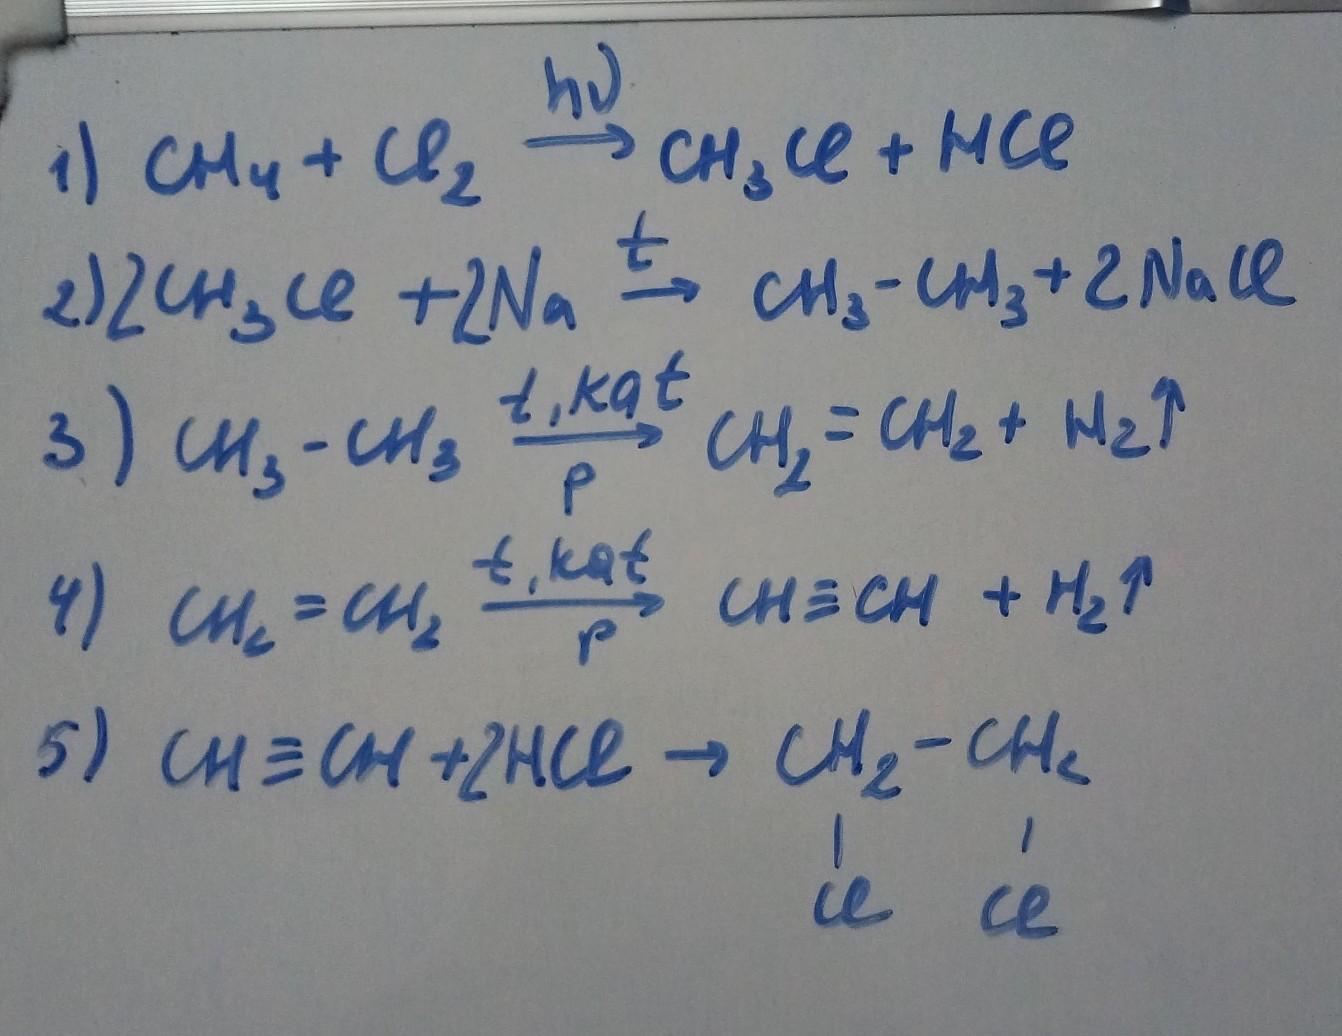 1) CH₄ + Cl₂ hν → CH₃Cl + HCl
2) 2CH₃Cl + 2Na t → CH₃-CH₃ + 2NaCl
3) CH₃-CH₃ t, kat → p CH₂=CH₂ + H₂↑
4) CH₂=CH₂ t, kat → p CH≡CH + H₂↑
5) CH≡CH + 2HCl → CH₂-CH₂
| |
Cl Cl